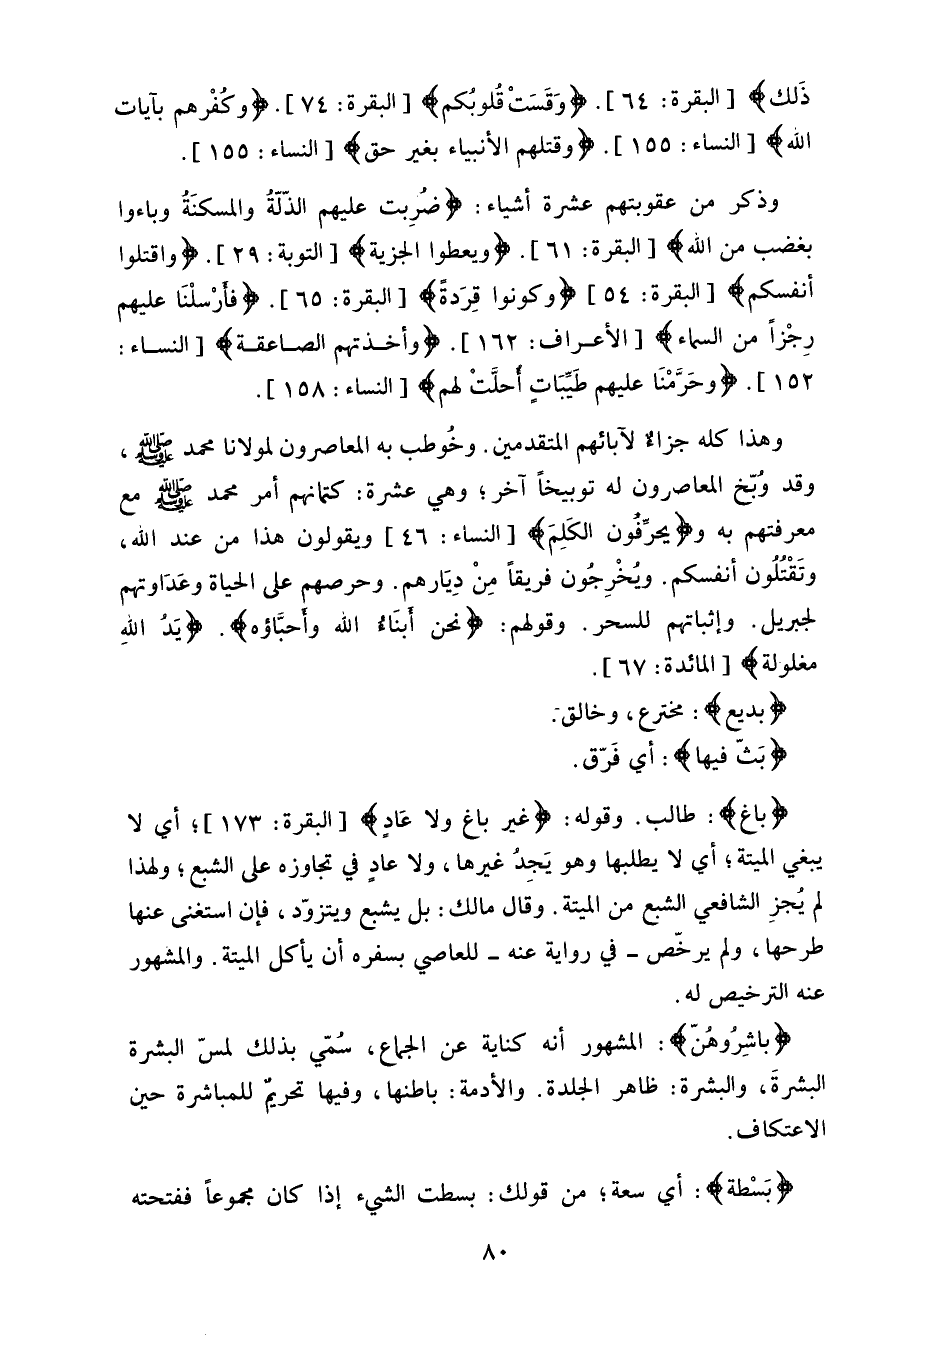 ذَلك﴾ [ البقرة: ٦٤ ]. ﴿وَقَسَتْ قُلوبُكم﴾ [ البقرة: ٧٤ ]. ﴿وكُفْرهم بآيات
الله﴾ [ النساء: ١٥٥ ]. ﴿وقتلهم الأنبياء بغير حق﴾ [ النساء: ١٥٥ ].
وذكر من عقوبتهم عشرة أشياء: ﴿ضُرِبت عليهم الذّلّةُ والمسكنَةُ وباءوا
بغضب من الله﴾ [ البقرة: ٦١ ]. ﴿ويعطوا الجزية﴾ [ التوبة: ٢٩ ]. ﴿واقتلوا
أنفسكم﴾ [ البقرة: ٥٤ ] ﴿وكونوا قِرَدةً﴾ [ البقرة: ٦٥ ]. ﴿فأَرْسلْنَا عليهم
رِجْزاً من السماء﴾ [ الأعراف: ١٦٢ ]. ﴿وأخذتهم الصاعقة﴾ [ النساء:
١٥٢ ]. ﴿وحَرَّمْنَا عليهم طَيِّبَاتٍ أُحلَّتْ لهم﴾ [ النساء: ١٥٨ ].
وهذا كله جزاءٌ لآبائهم المتقدمين. وخُوطب به المعاصرون لمولانا محمد ﷺ،
وقد وُبّخ المعاصرون له توبيخاً آخر؛ وهي عشرة: كتمانهم أمر محمد ﷺ مع
معرفتهم به و﴿يحرِّفُون الكَلِمَ﴾ [ النساء: ٤٦ ] ويقولون هذا من عند الله،
وتَقْتُلُون أنفسكم. ويُخْرِجُون فريقاً مِنْ دِيَارهم. وحرصهم على الحياة وعَدَاوتهم
لجبريل. وإثباتهم للسحر. وقولهم: ﴿نحن أَبنَاءُ الله وأَحبَّاؤه﴾. ﴿يَدُ اللهِ
مغلولة﴾ [ المائدة: ٦٧ ].
﴿بديع﴾: مخترع، وخالق.
﴿بَثّ فيها﴾: أي فَرّق.
﴿باغ﴾: طالب. وقوله: ﴿غير باغ ولا عَادٍ﴾ [ البقرة: ١٧٣ ]؛ أي لا
يبغي الميتة؛ أي لا يطلبها وهو يَجِدُ غيرها، ولا عادٍ في تجاوزه على الشبع؛ ولهذا
لم يُجزِ الشافعي الشبع من الميتة. وقال مالك: بل يشبع ويتزوّد، فإن استغنى عنها
طرحها، ولم يرخّص - في رواية عنه - للعاصي بسفره أن يأكل الميتة. والمشهور
عنه الترخيص له.
﴿باشِرُوهُنّ﴾: المشهور أنه كناية عن الجماع، سُمّي بذلك لمسّ البشرة
البشرةَ، والبشرة: ظاهر الجلدة. والأدمة: باطنها، وفيها تحريمٌ للمباشرة حين
الاعتكاف.
﴿بَسْطة﴾: أي سعة؛ من قولك: بسطت الشيء إذا كان مجموعاً ففتحته
٨٠